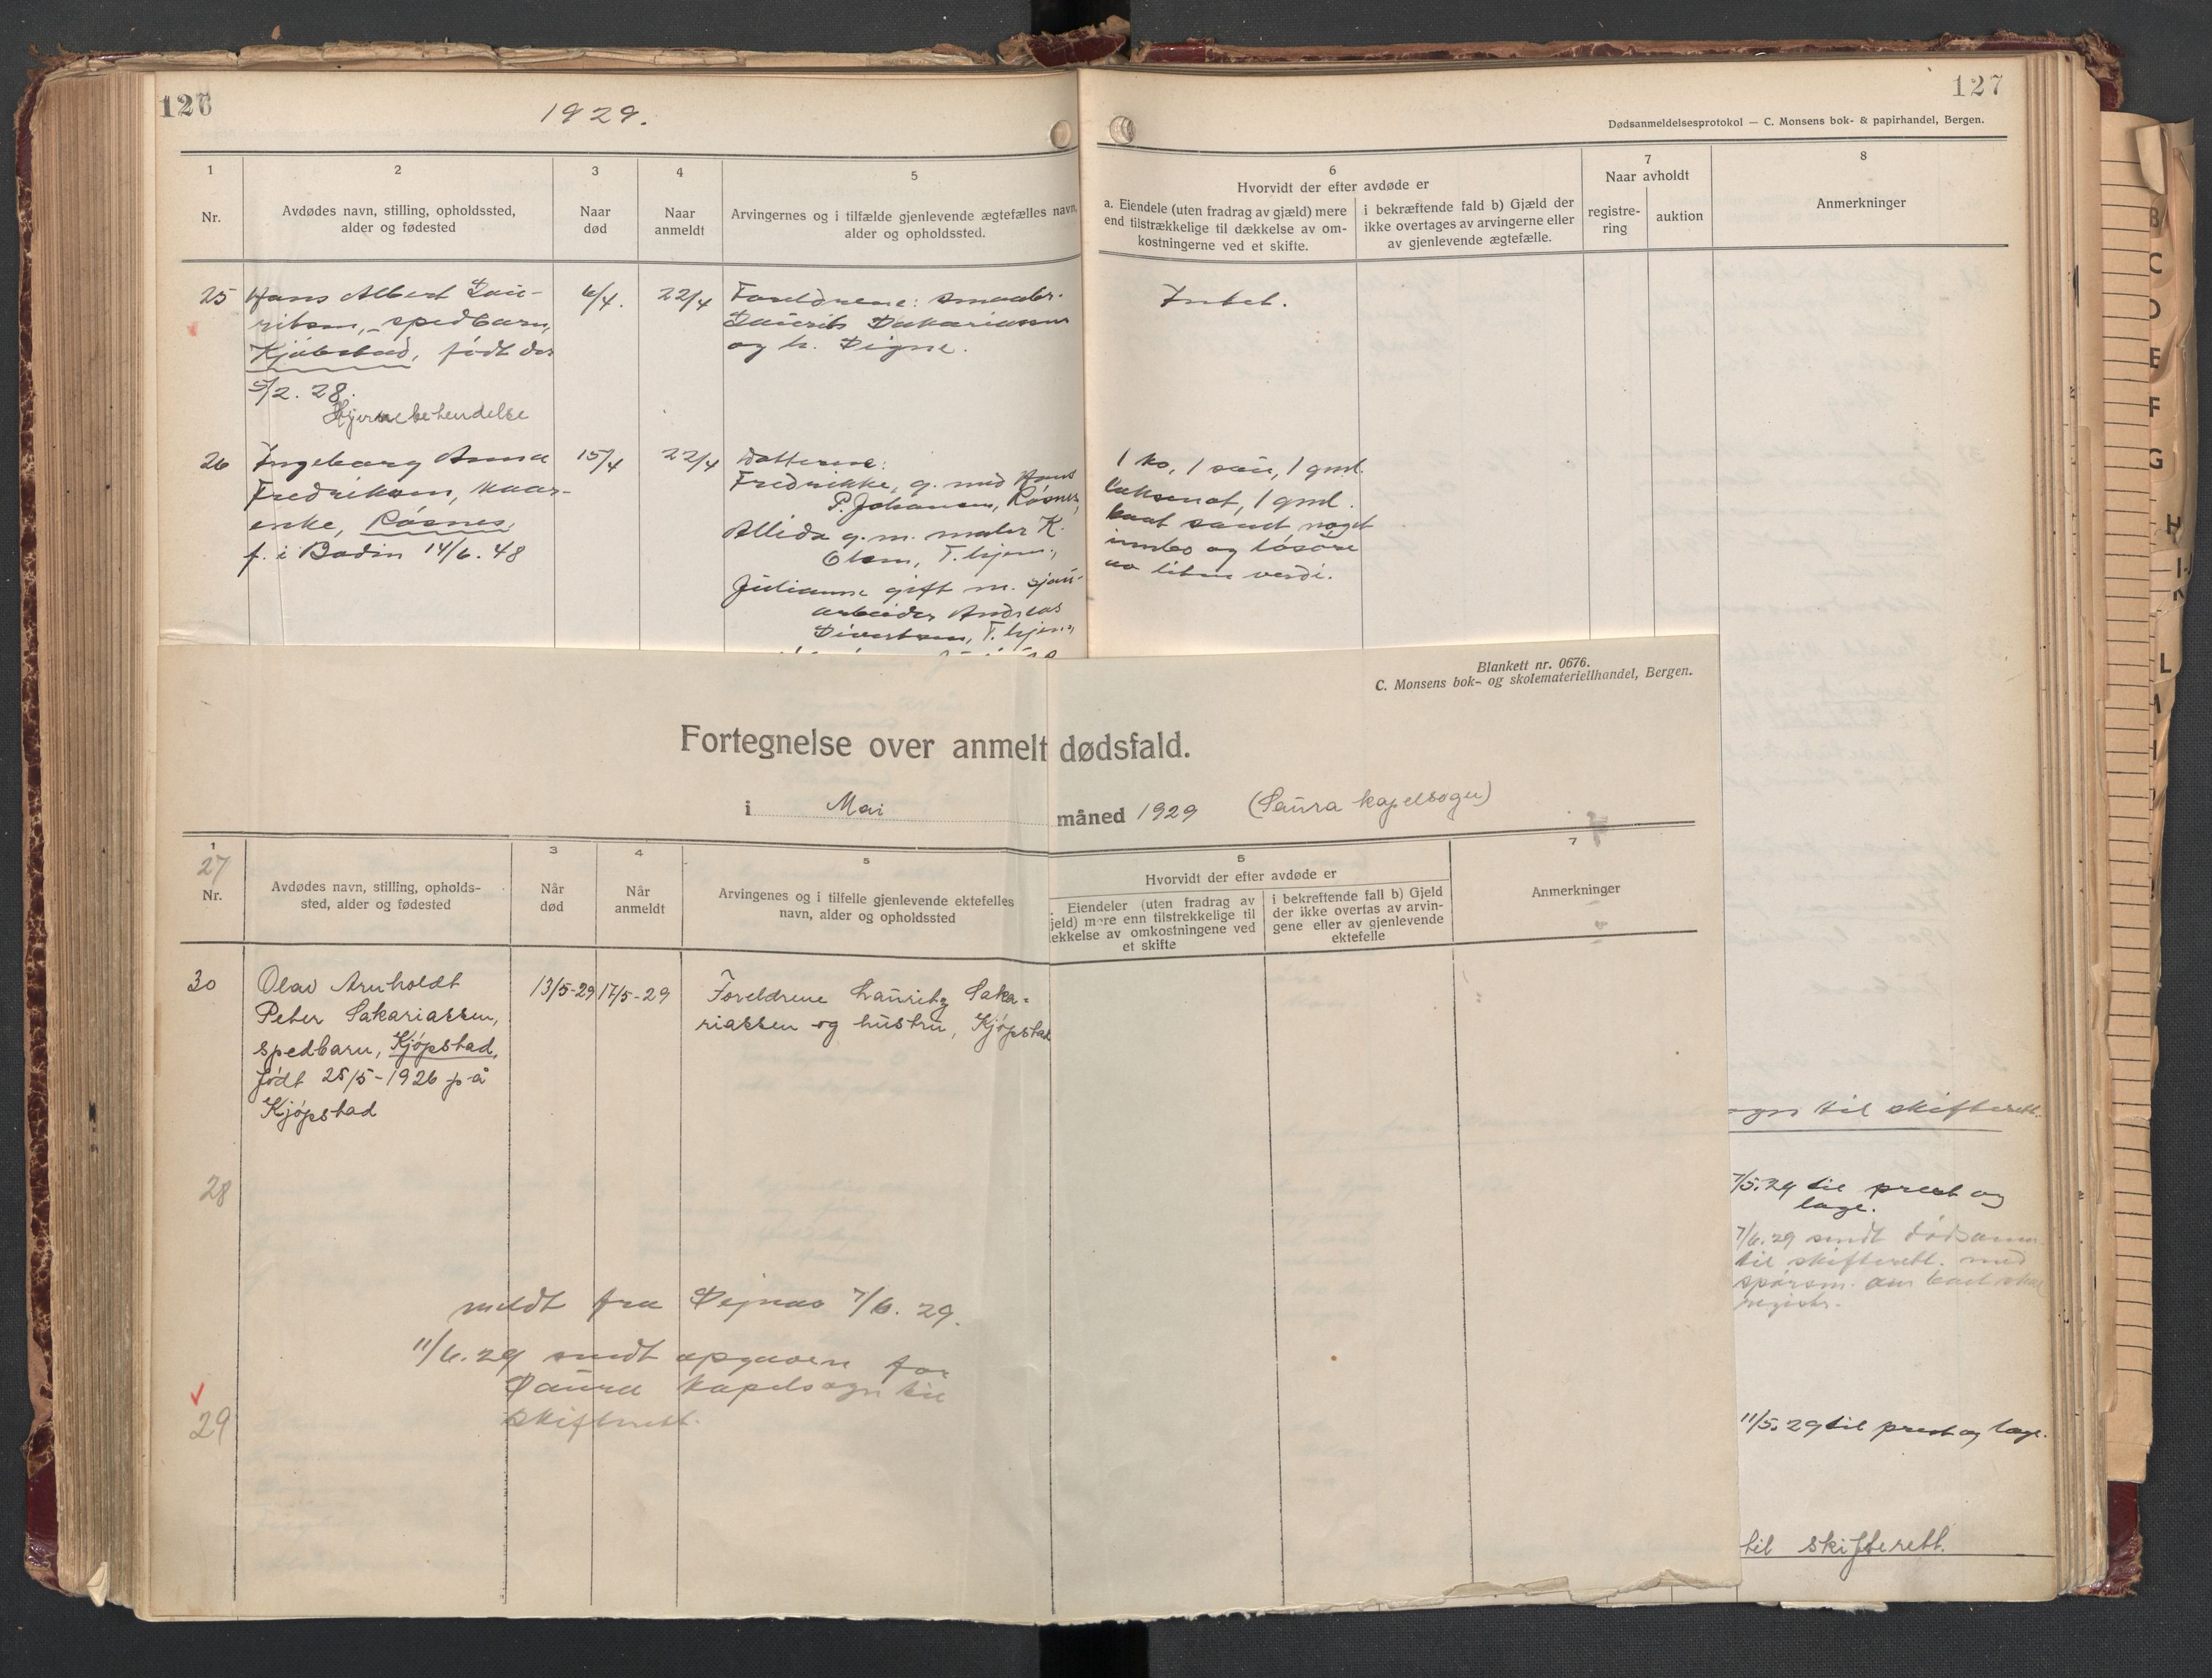 126
1929.
127
Dødsanmeldelsesprotokol — C. Monsens bok- & papirhandel, Bergen.
1
Nr.
2
Avdødes navn, stilling, opholdssted,
alder og fødested
3
Naar
død
4
Naar
anmeldt
5
Arvingernes og i tilfælde gjenlevende ægtefælles navn,
alder og opholdssted.
6
Hvorvidt der efter avdøde er
a. Eiendele (uten fradrag av gjæld) mere
end tilstrækkelige til dækkelse av om-
kostningerne ved et skifte.
i bekræftende fald b) Gjæld der
ikke overtages av arvingerne eller
av gjenlevende ægtefælle.
7
Naar avholdt
registre-
ring
auktion
8
Anmerkninger
25
Hans Albert Lau-
ritsen, spedbarn,
Kjøbstad, født der
5/2. 28.
6/4.
22/4
Foreldrene: smaabr.
Laurits Sakariassen
og h. Signe.
Intet.
26
Ingeborg Anna
Fredriksen, kaar-
enke, Røsnes,
f. i Bodin 14/6. 48
15/4
22/4
Døttrene:
Fredrikke, g. med Hans
P. Johansen, Røsnes,
Allida g. m. maler K.
Olsen, T. hjem.,
Julianne gift m. sjau-
arbeider Andreas
Sivertsen, T. hjem.,
1 ko, 1 sau, 1 gml.
laksenot, 1 gml.
baat samt noget
innbo og løsøre
av liten verdi.
Blankett nr. 0676.
C. Monsens bok- og skolemateriellhandel, Bergen.
Fortegnelse over anmelt dødsfald.
i Mai måned 1929 (Saura kapelsogn)
1
27
Nr.
Avdødes navn, stilling, opholds-
sted, alder og fødested
3
Når
død
4
Når
anmeldt
5
Arvingenes og i tilfelle gjenlevende ektefelles
navn, alder og opholdssted
6
Hvorvidt der efter avdøde er
Eiendeler (uten fradrag av
jeld) mere enn tilstrekkelige til
ekkelse av omkostningene ved
et skifte
i bekreftende fall b) Gjeld
der ikke overtas av arvin-
gene eller av gjenlevende
ektefelle
7
Anmerkninger
30
Olav Arnholdt
Peter Sakariassen,
spedbarn, Kjøpstad,
født 25/5-1926 på
Kjøpstad
13/5-29
17/5-29
Foreldrene Lauritz Saka-
riassen og hustru, Kjøpstad
28
meldt fra 7/6. 29.
11/6. 29 sendt opgaven for
Saura kapelsogn til
skifterett.
29
ogn til skifterett.
7/5. 29 til prest og
læge.
7/6. 29 sendt dødsanm
til skifterett. med
spørsm. om skal
registr.
11/5. 29 til prest og læge.
til skifterett.
B
C
D
E
F
G
H
L